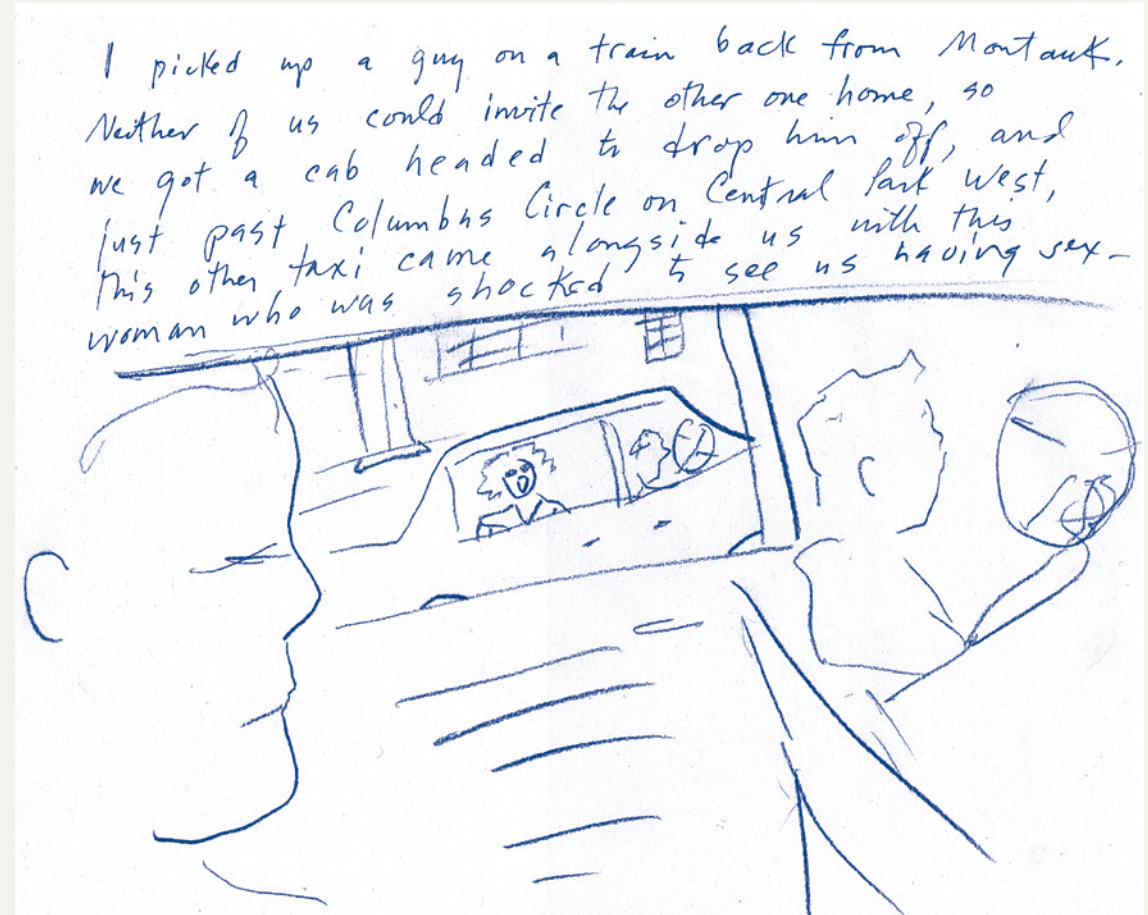 I picked up a guy on a train back from Montauk.
Neither of us could invite the other one home, so
we got a cab headed to drop him off, and
just past Columbus Circle on Central Park West,
this other taxi came alongside us with this
woman who was shocked to see us having sex–